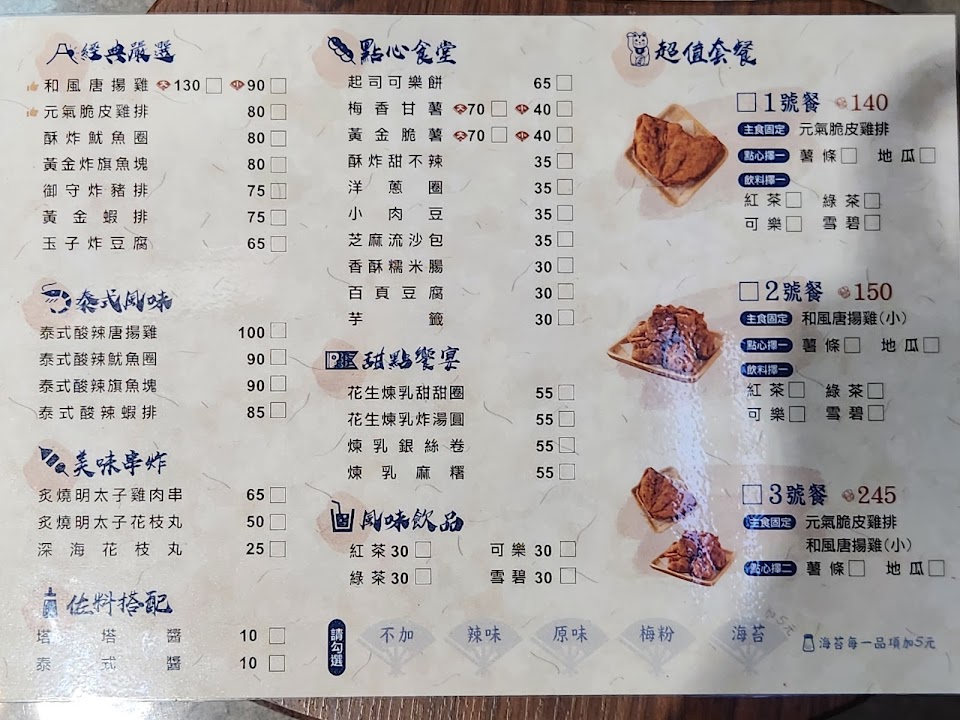 經典嚴選
和風唐揚雞 大130 小90
元氣脆皮雞排 80
酥炸魷魚圈 80
黃金炸旗魚塊 80
御守炸豬排 75
黃金蝦排 75
玉子炸豆腐 65
泰式風味
泰式酸辣唐揚雞 100
泰式酸辣魷魚圈 90
泰式酸辣旗魚塊 90
泰式酸辣蝦排 85
美味串炸
炙燒明太子雞肉串 65
炙燒明太子花枝丸 50
深海花枝丸 25
佐料搭配
塔塔醬 10
泰式醬 10
點心食堂
起司可樂餅 65
梅香甘薯 大70 小40
黃金脆薯 大70 小40
酥炸甜不辣 35
洋蔥圈 35
小肉豆 35
芝麻流沙包 35
香酥糯米腸 30
百頁豆腐 30
芋籤 30
甜點饗宴
花生煉乳甜甜圈 55
花生煉乳炸湯圓 55
煉乳銀絲卷 55
煉乳麻糬 55
風味飲品
紅茶30 可樂30
綠茶30 雪碧30
請勾選 不加 辣味 原味 梅粉 海苔
加5元
海苔每一品項加5元
超值套餐
1號餐 140
主食固定 元氣脆皮雞排
點心擇一 薯條 地瓜
飲料擇一
紅茶 綠茶
可樂 雪碧
2號餐 150
主食固定 和風唐揚雞(小)
點心擇一 薯條 地瓜
飲料擇一
紅茶 綠茶
可樂 雪碧
3號餐 245
主食固定 元氣脆皮雞排
和風唐揚雞(小)
點心擇二 薯條 地瓜